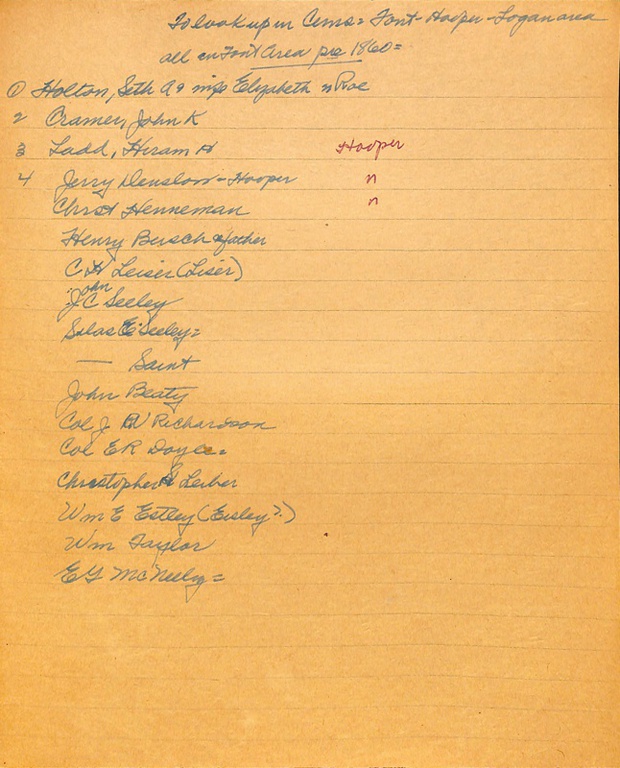 To look up in Cems = Font - Hooper - Logan area
all in Font Area pre 1860 =
① Holton, Seth A & Elizabeth n Roe
2 Cramer, John K
3 Ladd, Hiram H Hooper
4 Jerry Denslow - Hooper "
Christ Henneman "
Henry Bersch father
C H Leiser (Liser)
John
J.C Seeley
Silas E. Seeley =
— Saint
John Beaty
Col J W Richardson
Col E R Doyle =
Christopher Leiber
Wm E Estley (Eisley?)
Wm Taylor
E G McNeely =